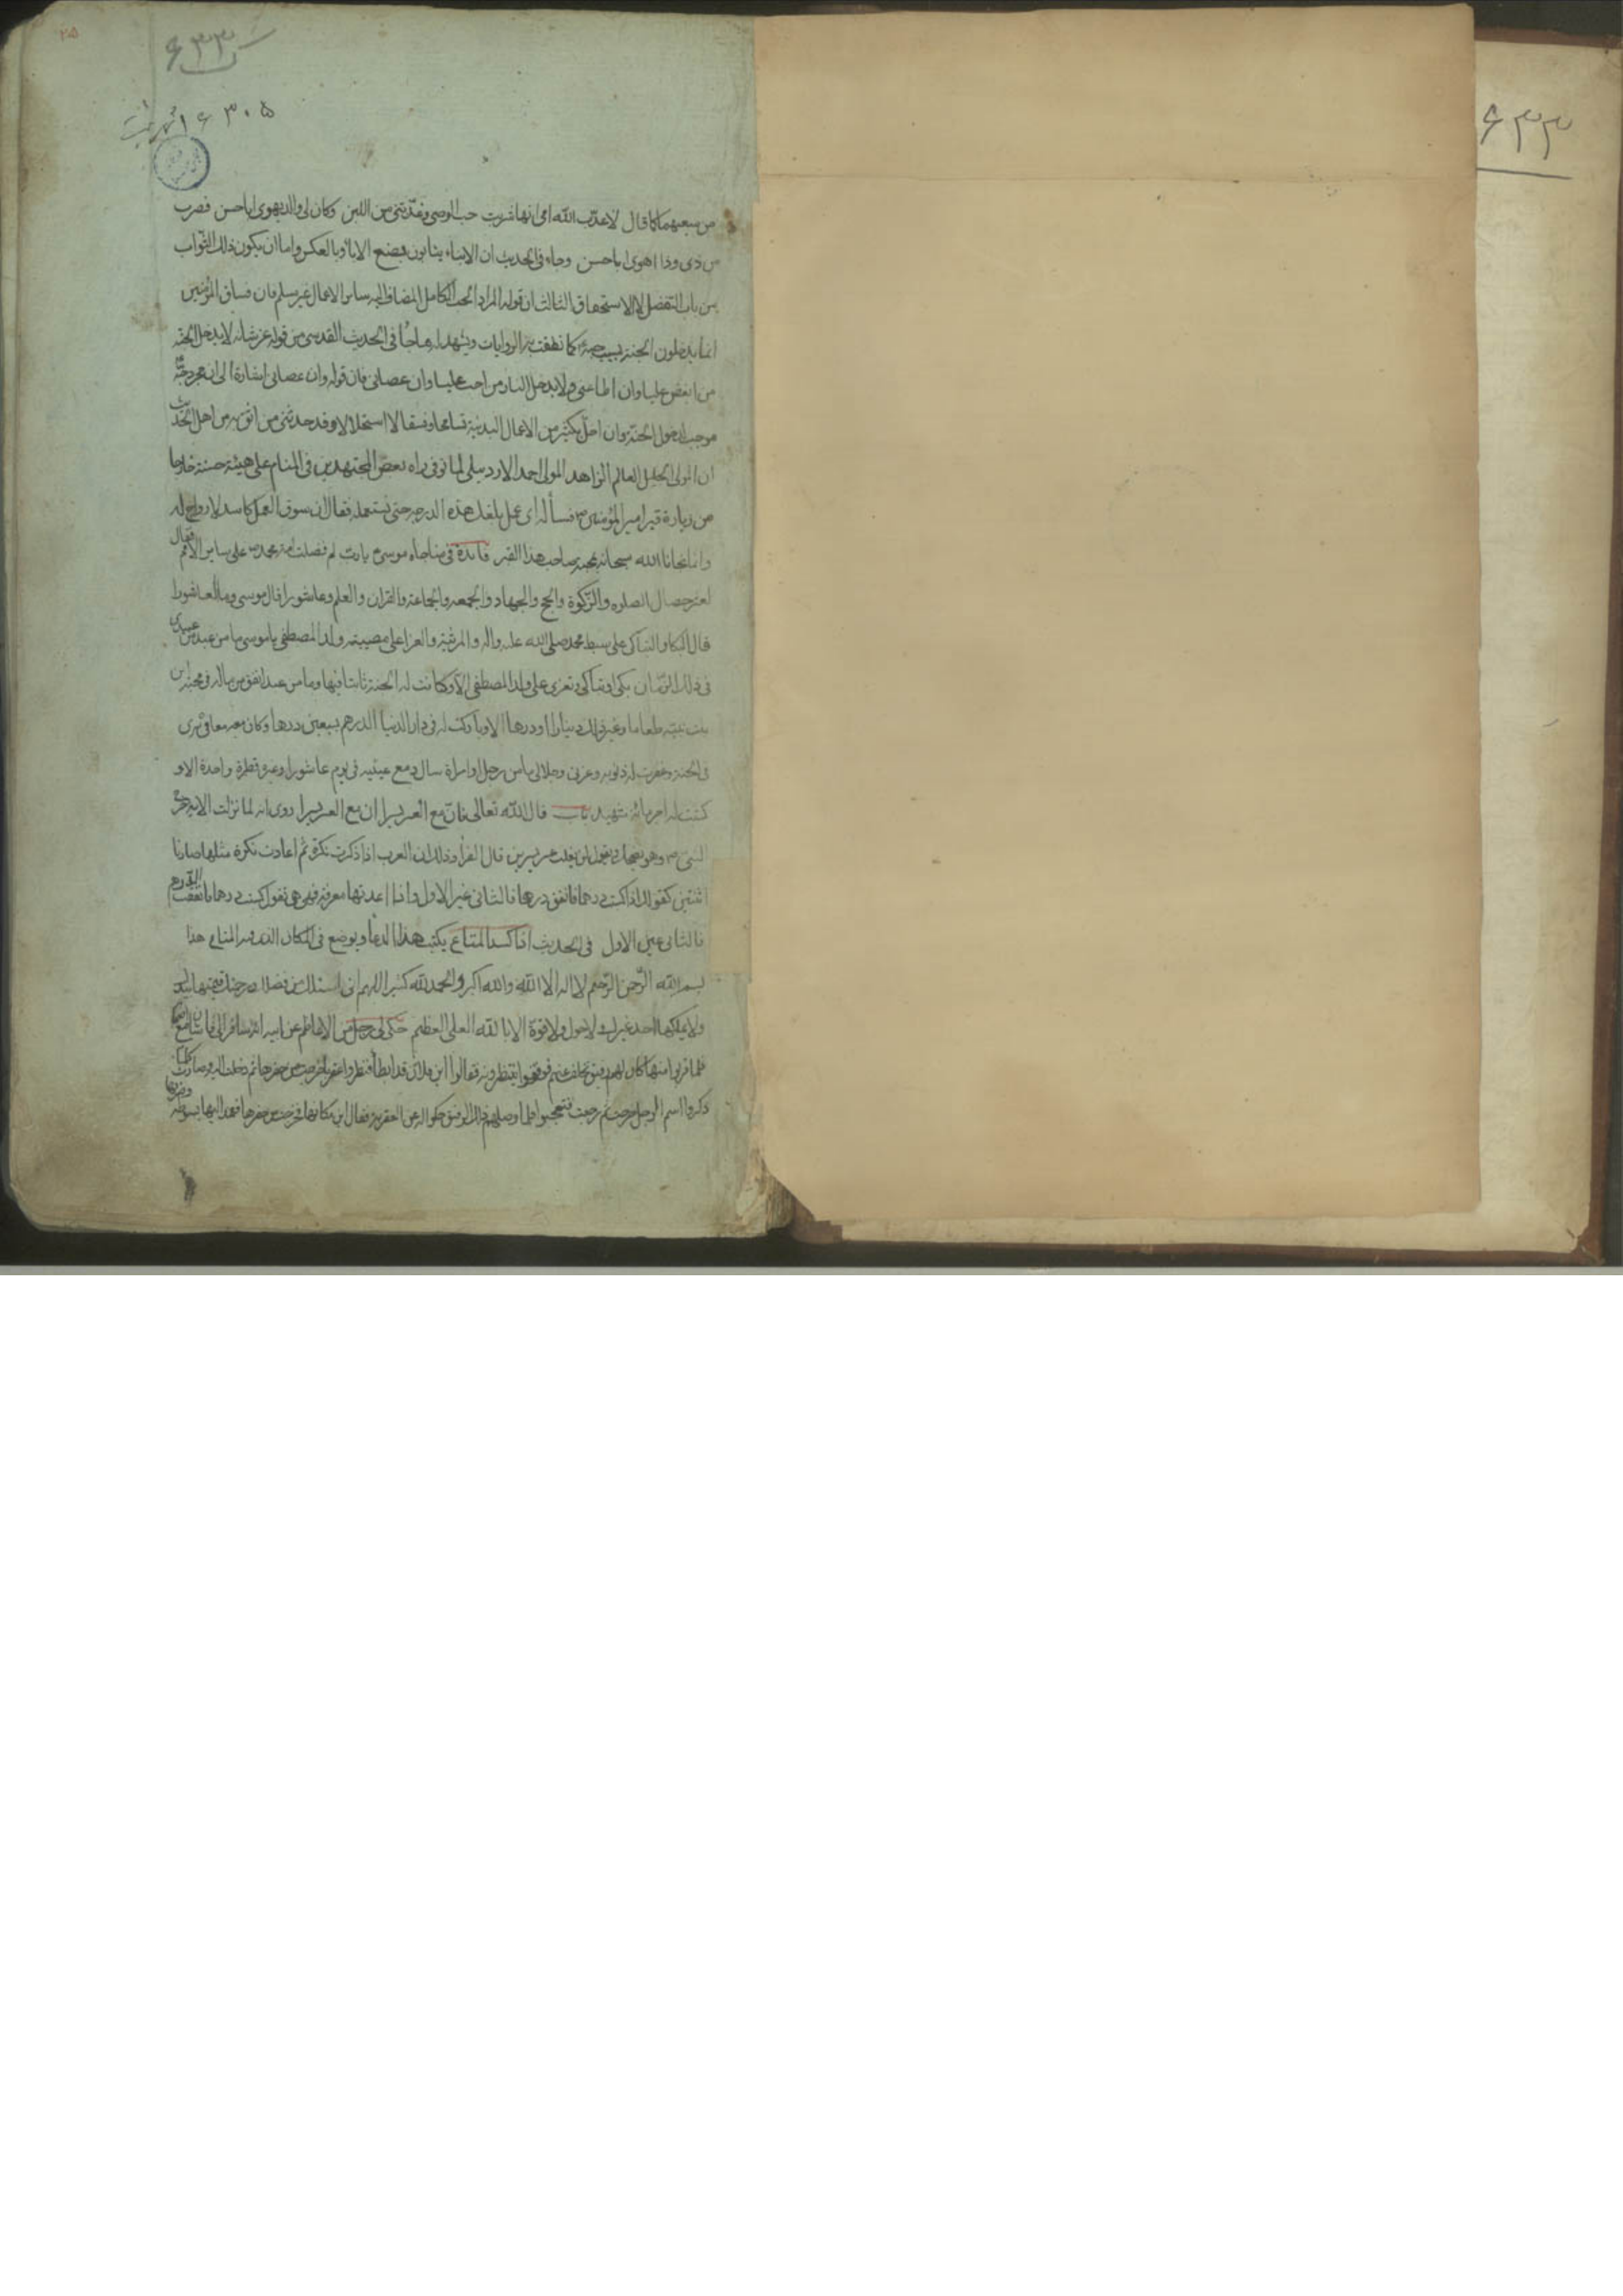 ۲۵
۶۳۳
۱۶۳۰۵
۶۳۳
من سعيهما كما قال لا عذب الله امی انها شربت حب الوصی وغذتنی من اللبن وكان لی والد يهوی ابا حسن فصرت
من ذی وذا اهوی ابا حسن وجاء فی الحديث ان الابناء يثابون بصنع الاباء وبالعكس واما ان يكون ذلك الثواب
من باب التفضل لا الاستحقاق الثالث ان قوله المراد الحب الكامل المضاف اليه ساير الاعمال غير مسلم فان فساق المؤمنين
انما يدخلون الجنة بسبب حبه كما نطقت به الروايات ويشهد له ما جاء فی الحديث القدسی من قوله عز شانه لا يدخل الجنة
من ابغض عليا وان اطاعنی ولا يدخل النار من احب عليا وان عصانی فان قوله وان عصانی اشارة الی ان مجرد حبه
موجب لدخول الجنة وان اخل بكثير من الاعمال البدنية تسامحا وفسقا لا استحلالا وقد حدثنی من اثق به من اهل الحديث
ان المولی الجليل العالم الزاهد المولی احمد الاردبيلی لما توفی راه بعض المجتهدين فی المنام علی هيئة حسنة خارجا
من زيارة قبر امير المؤمنين فسأله ای عمل بلغك هذه الدرجة حتی نستعمله فقال ان سوق العمل كاسد لا رواج له
وانما نجانا الله سبحانه بمحبة صاحب هذا القبر فائدة فی مناجاة موسی يا رب لم فضلت امة محمد علی ساير الامم فقال
لعشر خصال الصلوة والزكوة والحج والجهاد والجمعة والجماعة والقران والعلم وعاشورا قال موسی وما العاشورا
قال البكا والتباكی علی سبط محمد صلی الله عليه واله والمرثية والعزا علی مصيبة ولد المصطفی يا موسی ما من عبد من عبيدی
فی ذلك الزمان بكی او تباكی وتعزی علی ولد المصطفی الا وكانت له الجنة ثابتا فيها وما من عبد انفق من ماله فی محبة ابن
بنت نبيه طعاما وغير ذلك دينارا او درهما الا وباركت له فی دار الدنيا الدرهم بسبعين درهما وكان معافی
فی الجنة وغفرت له ذنوبه وعزتی وجلالی ما من رجل او امراة سال دمع عينيه فی يوم عاشورا وغيره قطرة واحدة الا و
كتبت له اجر مائة شهيد قال الله تعالی فان مع العسر يسرا ان مع العسر يسرا روی انه لما نزلت الاية خرج
النبی وهو يقول لن يغلب عسر يسرين قال الفرا وذلك ان العرب اذا ذكرت نكرة ثم اعادت نكرة مثلها صارتا
اثنتين كقولك اذا كسبت درهما فانفق درهما فالثانی غير الاول واذا اعدتها معرفة فهی هی تقول كسبت درهما فانفقت الدرهم
فالثانی عين الاول فی الحديث اذا كسد المتاع يكتب هذا الدعا ويوضع فی المكان الذی فيه المتاع هذا
بسم الله الرحمن الرحيم لا اله الا الله والله اكبر والحمد لله كثيرا اللهم انی اسئلك من فضلك ورحمتك
ولا يملكها احد غيرك ولا حول ولا قوة الا بالله العلی العظيم حكی لی رجل من الاعاظم عن ابيه انه سافر الی
فلما قربوا منها كان لهم رفيق تخلف عنهم فوقفوا ينتظرونه فقالوا ابن فلان قد ابطأ فنظروا عقربا خرجت من جحرها ثم دخلت اليه وصارت كلما
ذكروا اسم الرجل خرجت ثم رجعت فتعجبوا فلما وصلهم ذلك الرفيق حكوا له عن العقرب فقال اين مكانها فخرجت من جحرها فعمد اليها بسوطه وضربها